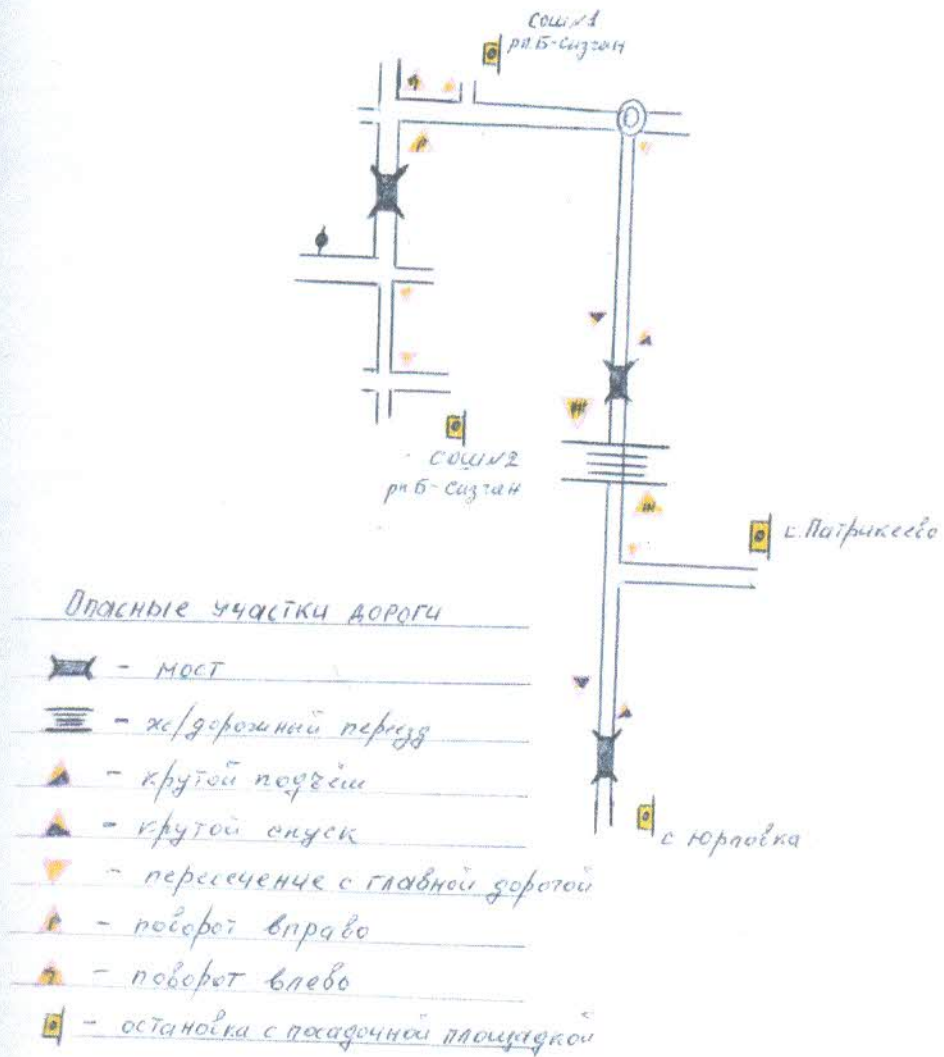 СОШ №1
рп. Б-Сызган
СОШ №2
рп Б-Сызган
с. Патрикеево
с Юрловка
Опасные участки дороги
- мост
- ж/дорожный переезд
- крутой подъём
- крутой спуск
- пересечение с главной дорогой
- поворот вправо
- поворот влево
- остановка с посадочной площадкой